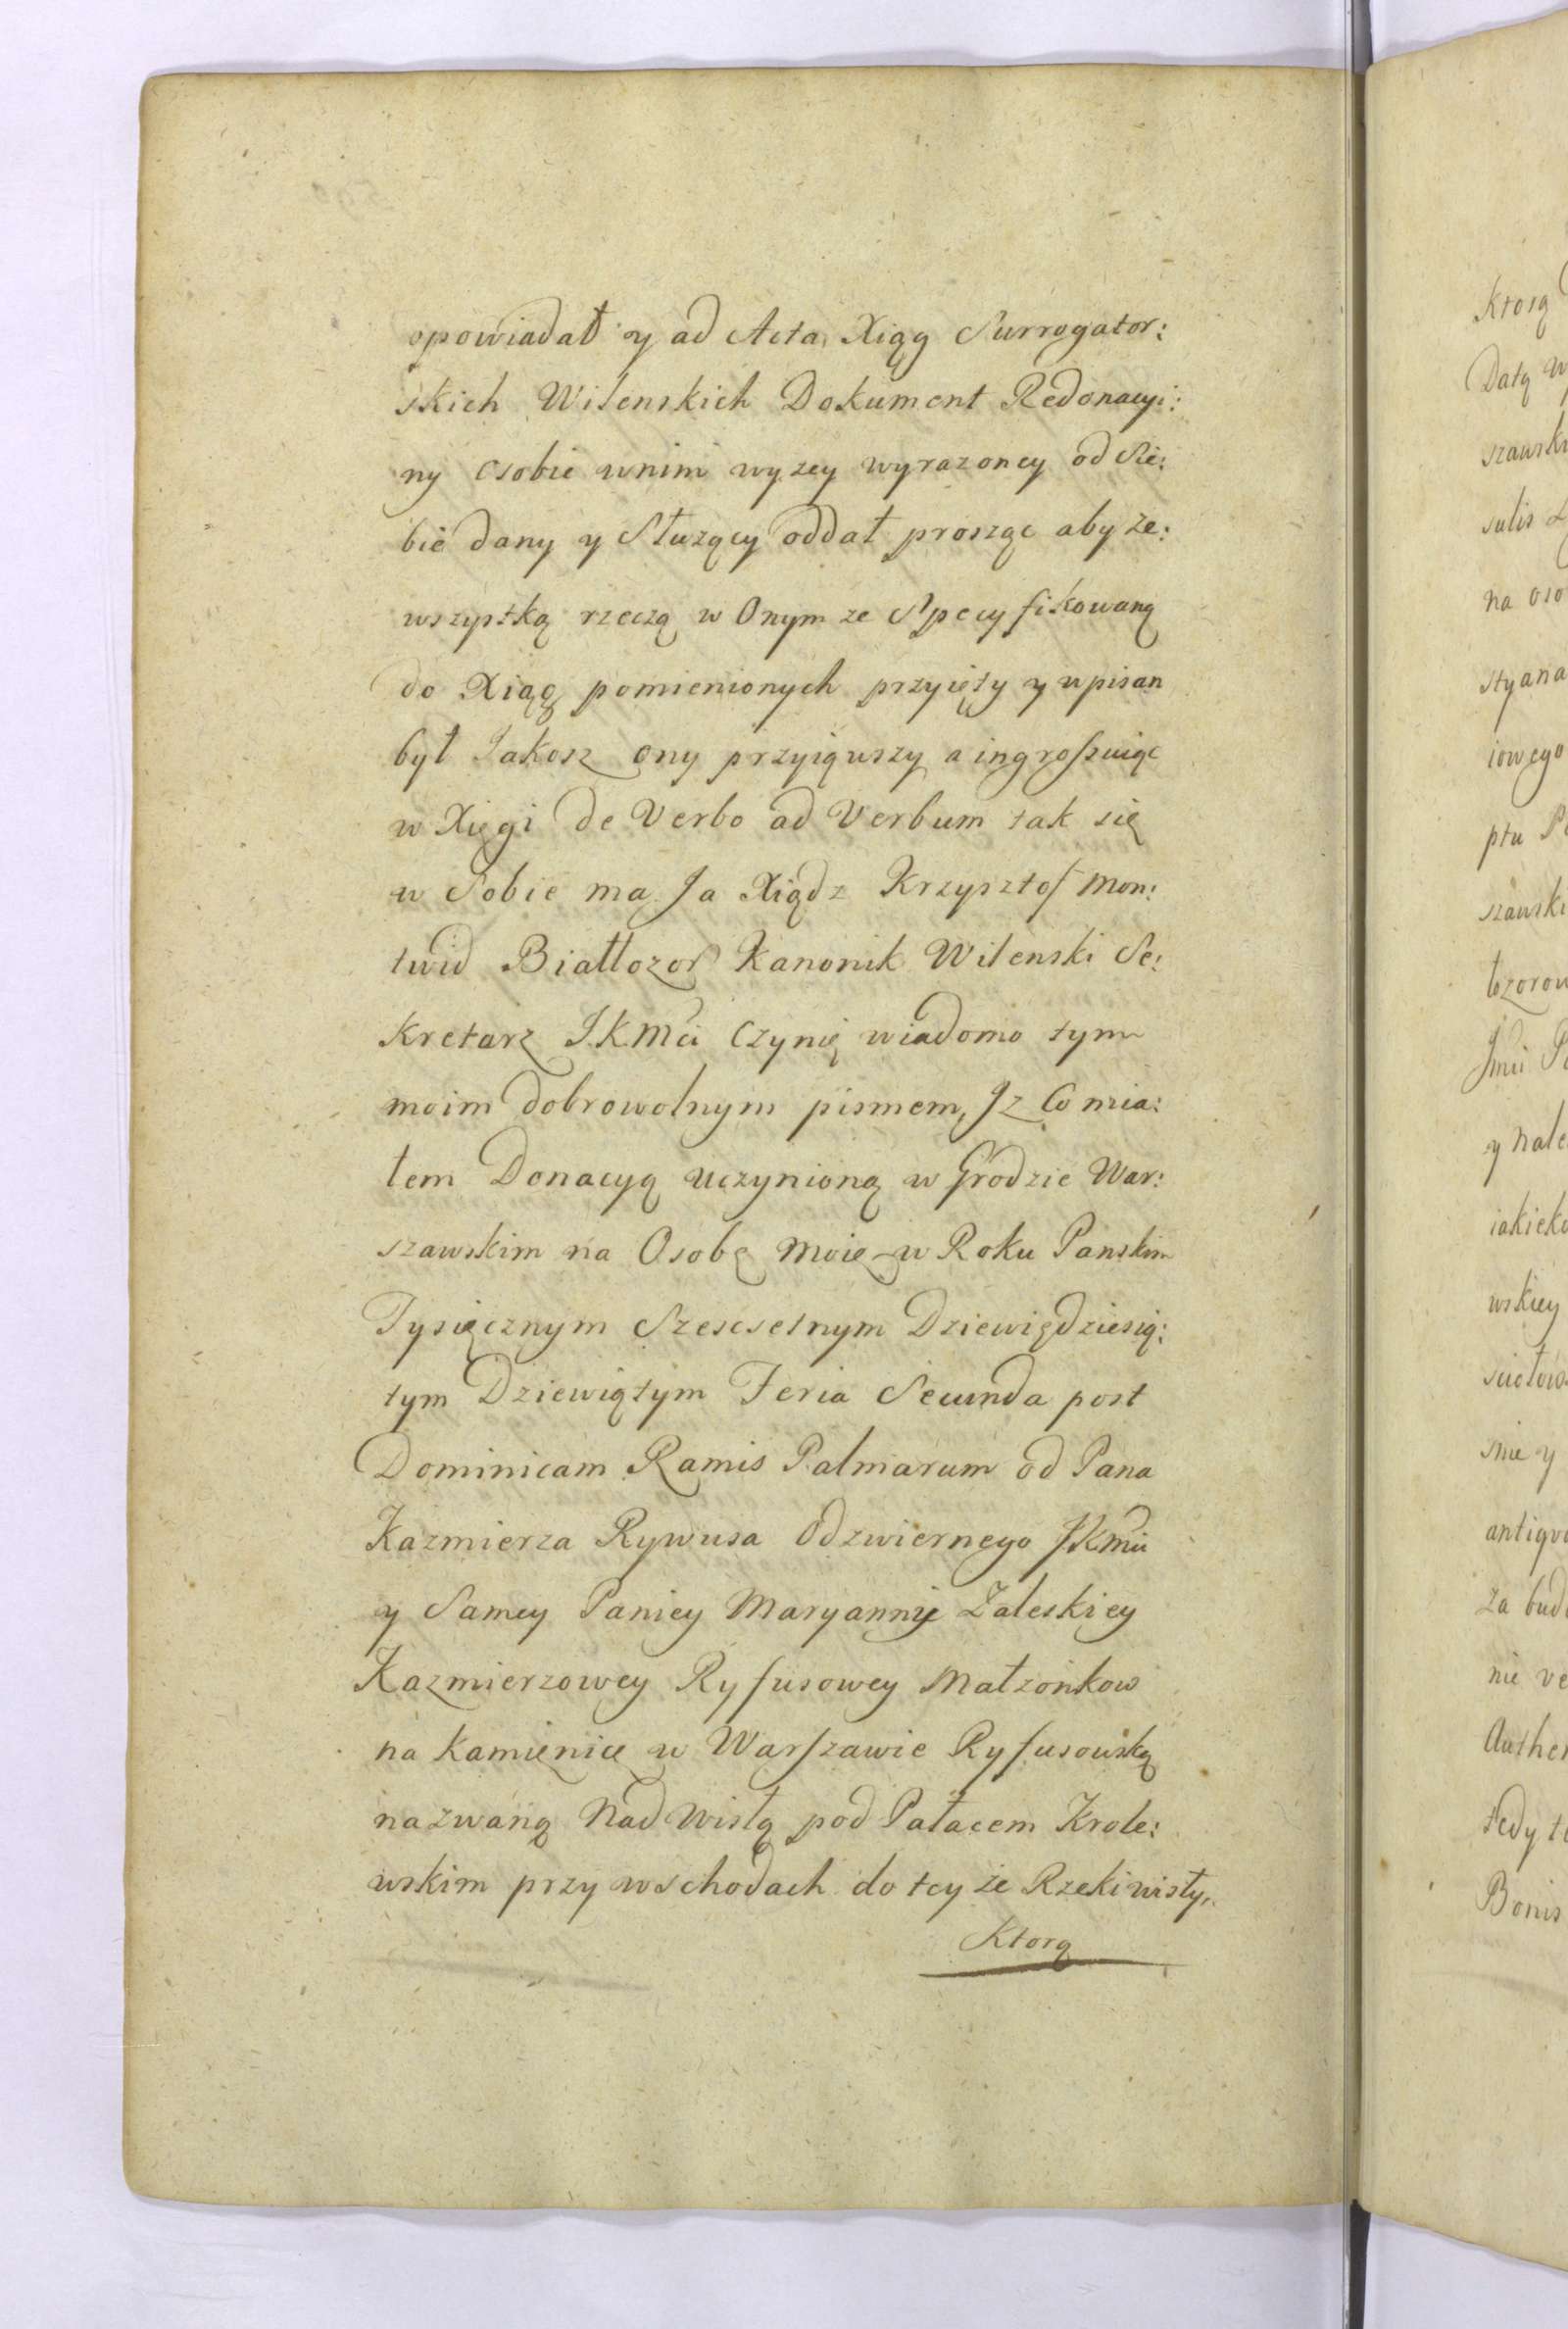 opowiadał y ad Acta Xiąg Surrogator:
skich Wilenskich Dokument Redonacyi:
ny Osobie wnim wyzey wyrazoney od Sie:
bie dany y Słuzący oddał prosząc aby ze:
wszystką rzeczą w Onym ze Specyfikowaną
do Xiąg pomienionych przyięty y upisan
był Jakosz ony przyiąwszy a ingrossuiąc
w Xięgi de Verbo ad Verbum tak się
w Sobie ma Ja Xiądz Krzysztof Mon:
twid Białłozor Kanonik Wilenski Se:
kretarz JKMci Czynię wiadomo tym
moim dobrowolnym pismem, Jz Co mia:
łem Donacyą uczynioną w Grodzie War:
szawskim na Osobę moię w Roku Panskim
Tysiącznym Szescsetnym Dziewiędziesią:
tym Dziewiątym Feria Secunda post
Dominicam Ramis Palmarum od Pana
Kazmierza Rywusa Odzwiernego JKmci
y Samey Paniey Maryanny Zaleskiey
Kazmierzowey Ryfusowey Małzonkow
na Kamienicę w Warszawie Ryfusowską
nazwaną Nad Wisłą pod Pałacem Krole:
wskim przy wschodach do tey ze Rzeki wisły,
Ktorą
Ktorą
Datą
szawski
sulis
na oso
styana
iowego
ptu
szawski
łozorow
Jmci
y Nale
iakieko
wskiey
snie y
antiquo
za bud
nie ve
Authen
tedy
Bonis